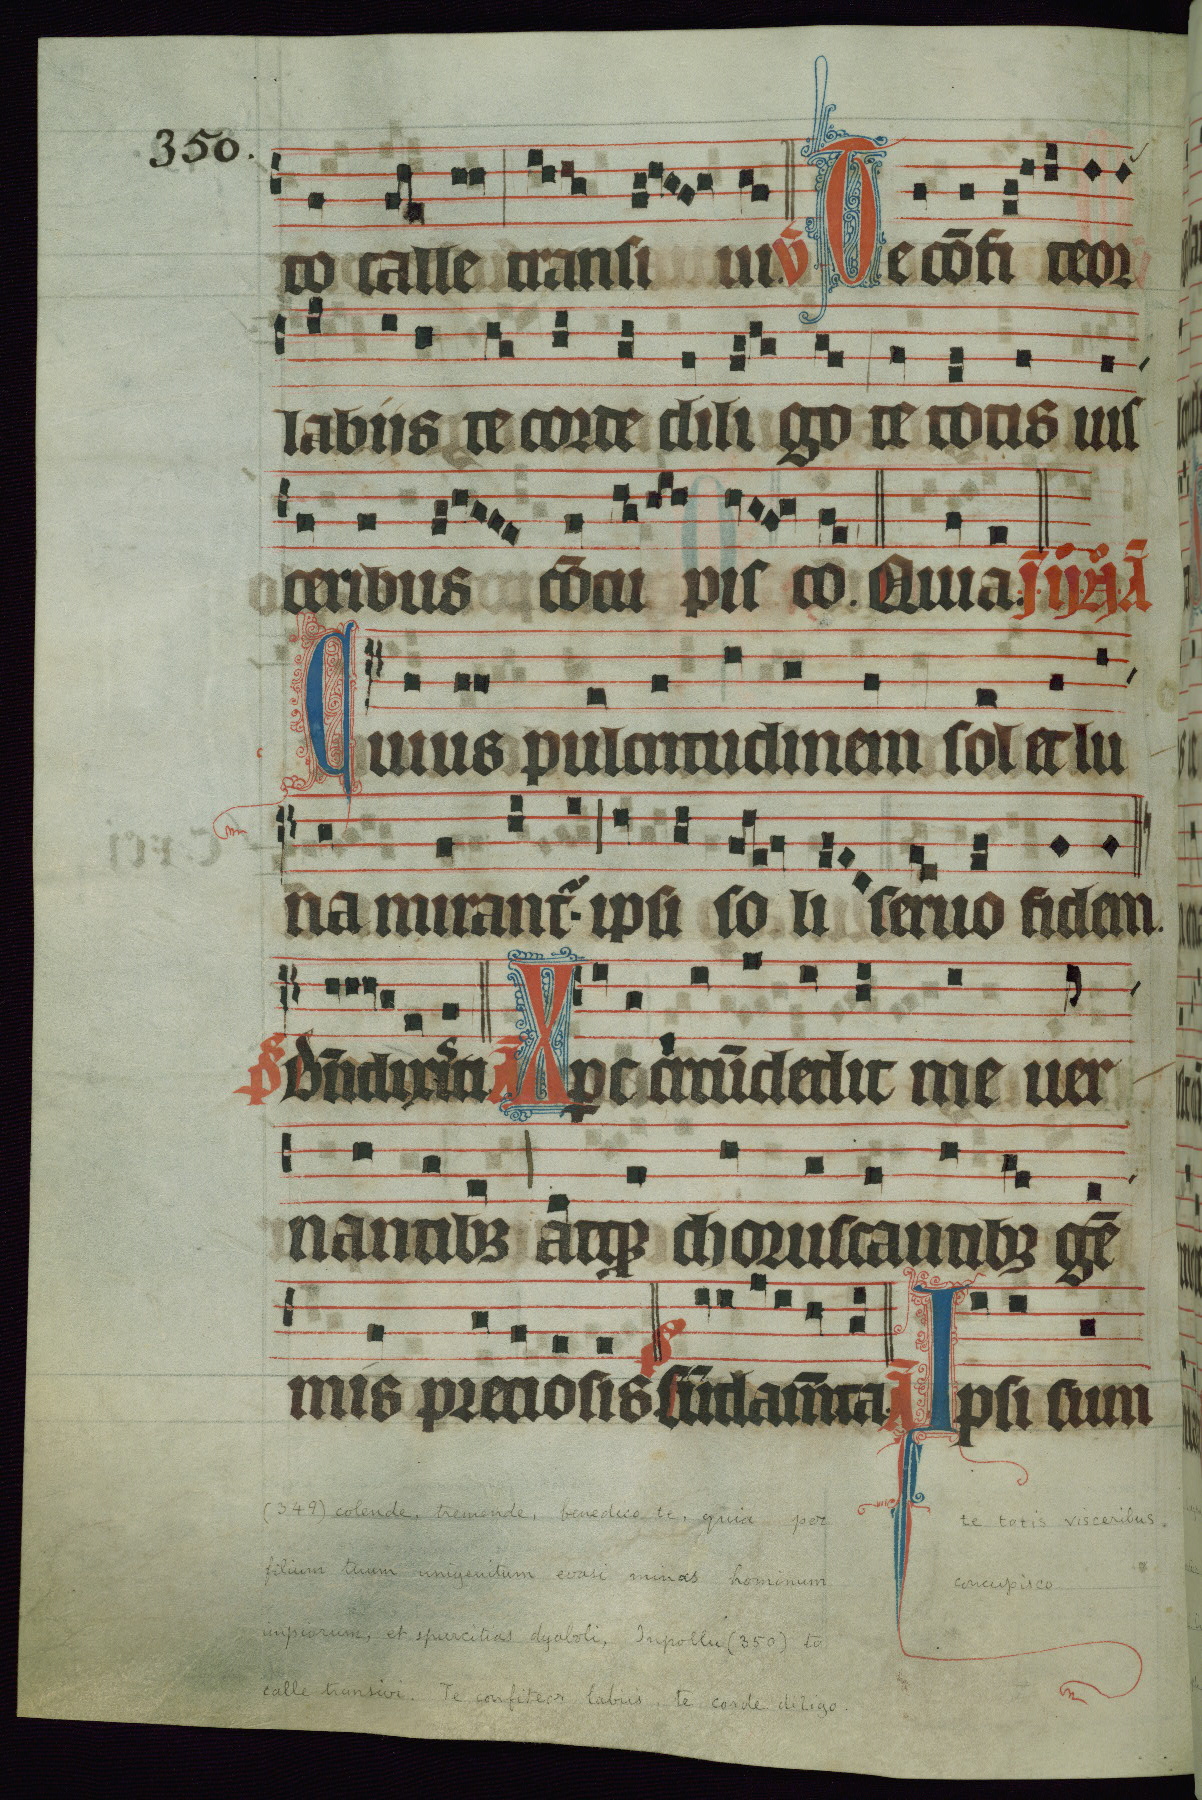 350.
to calle transi ui. v̄ Te cōfi teor
labiis te corde dili go te totis uis
ceribus cōcu pis co. Quia.
Cuius pulcritudinem sol et lu
na mirant᷑. ipsi so li seruo fidem.
ps̄ Dn̄i dixīsti Ā Xpc circūdedit me uer
nantibꝫ atqꝫ choruscantibꝫ gē
mis preciosis Fūdamēta Ā Ipsi sum
(349) colende, tremende, benedico te, quia per
filium tuum unigenitum evasi minas hominum
impiorum, et spurcitias dyaboli, Inpollu (350) to
calle transivi. Te confiteor labiis, te corde diligo.
te totis visceribus
concupisco